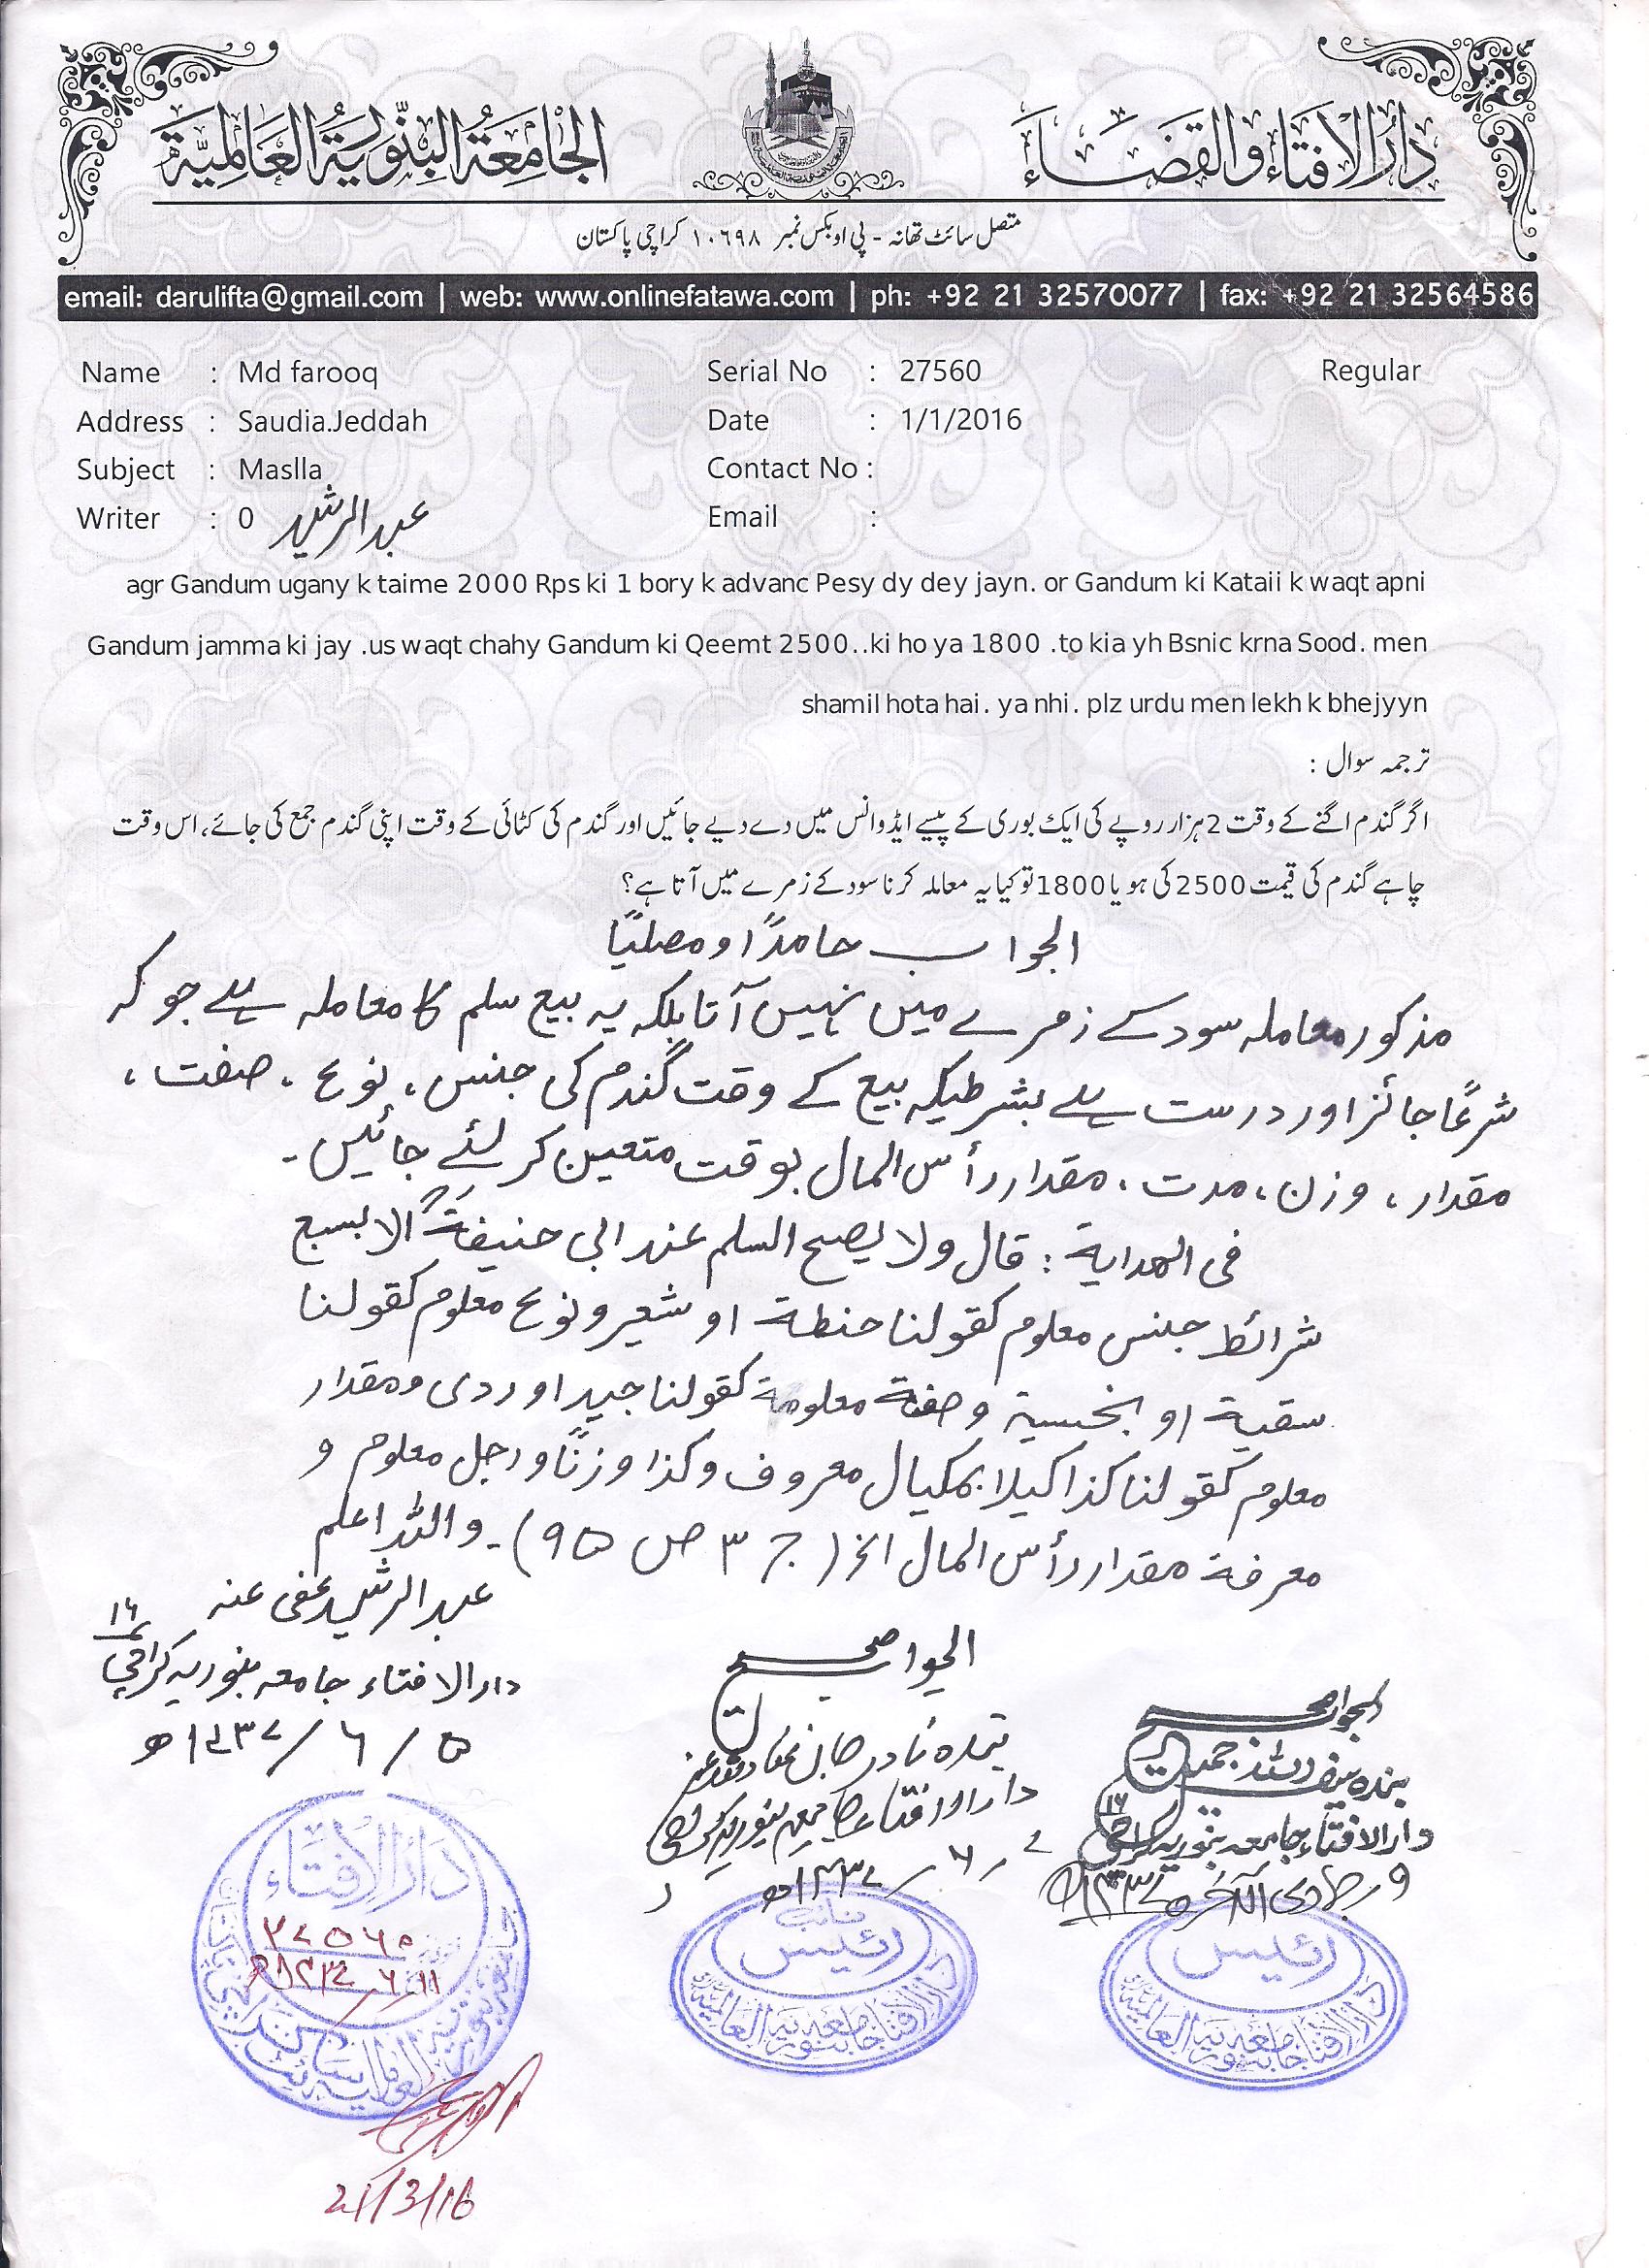 دارُ الافتاء والقضاء
الجامعة البنورية العالمية
متصل سائٹ تھانہ - پی او بکس نمبر ۱۰۶۹۸ کراچی پاکستان
email: darulifta@gmail.com | web: www.onlinefatawa.com | ph: +92 21 32570077 | fax: +92 21 32564586
Name : Md farooq Serial No : 27560 Regular
Address : Saudia.Jeddah Date : 1/1/2016
Subject : Maslla Contact No :
Writer : 0 عبدالرشید Email :
agr Gandum ugany k taime 2000 Rps ki 1 bory k advanc Pesy dy dey jayn. or Gandum ki Kataii k waqt apni
Gandum jamma ki jay .us waqt chahy Gandum ki Qeemt 2500..ki ho ya 1800 .to kia yh Bsnic krna Sood. men
shamil hota hai. ya nhi. plz urdu men lekh k bhejyyn
ترجمہ سوال :
اگر گندم اگنے کے وقت 2 ہزار روپے کی ایک بوری کے پیسے ایڈوانس میں دے دیے جائیں اور گندم کی کٹائی کے وقت اپنی گندم جمع کی جائے، اس وقت
چاہے گندم کی قیمت 2500 کی ہو یا 1800 تو کیا یہ معاملہ کرنا سود کے زمرے میں آتا ہے؟
الجواب حامدًا و مصلیًا
مذکور معاملہ سود کے زمرے میں نہیں آتا بلکہ یہ بیع سلم کا معاملہ ہے جو کہ
شرعًا جائز اور درست ہے بشرطیکہ بیع کے وقت گندم کی جنس، نوع، صفت،
مقدار، وزن، مدت، مقدار رأس المال بوقت متعین کر لئے جائیں۔
فی الهدایة : قال ولا یصح السلم عند ابی حنیفةؒ الا بسبع
شرائط جنس معلوم کقولنا حنطة او شعیر و نوع معلوم کقولنا
سقیة او بخسیة و صفة معلومة کقولنا جید او ردی و مقدار
معلوم کقولنا کذا کیلا بمکیال معروف و کذا وزنًا و رجل معلوم و
معرفة مقدار رأس المال الخ (ج ۳ ص ۹۵)۔ واللہ اعلم
عبدالرشید عفی عنہ
دارالافتاء جامعہ بنوریہ کراچی ۱۶
۵ / ۶ / ۱۴۳۷ھ
الجواب صحیح
بندہ نادر جان
دارالافتاء جامعہ بنوریہ کراچی
۷ / ۶ / ۱۴۳۷ھ
الجواب صحیح
بندہ سیف اللہ جمیل
دارالافتاء جامعہ بنوریہ کراچی ۱۶
۹ جمادی الآخرہ ۱۴۳۷ھ
دارُ الافتاء
۲۷۵۶۰
۱۱ / ۶ / ۱۴۳۷ھ
نائب
رئیس
دارالافتاء جامعہ بنوریہ العالمیہ
رئیس
دارالافتاء جامعہ بنوریہ العالمیہ
21/3/16